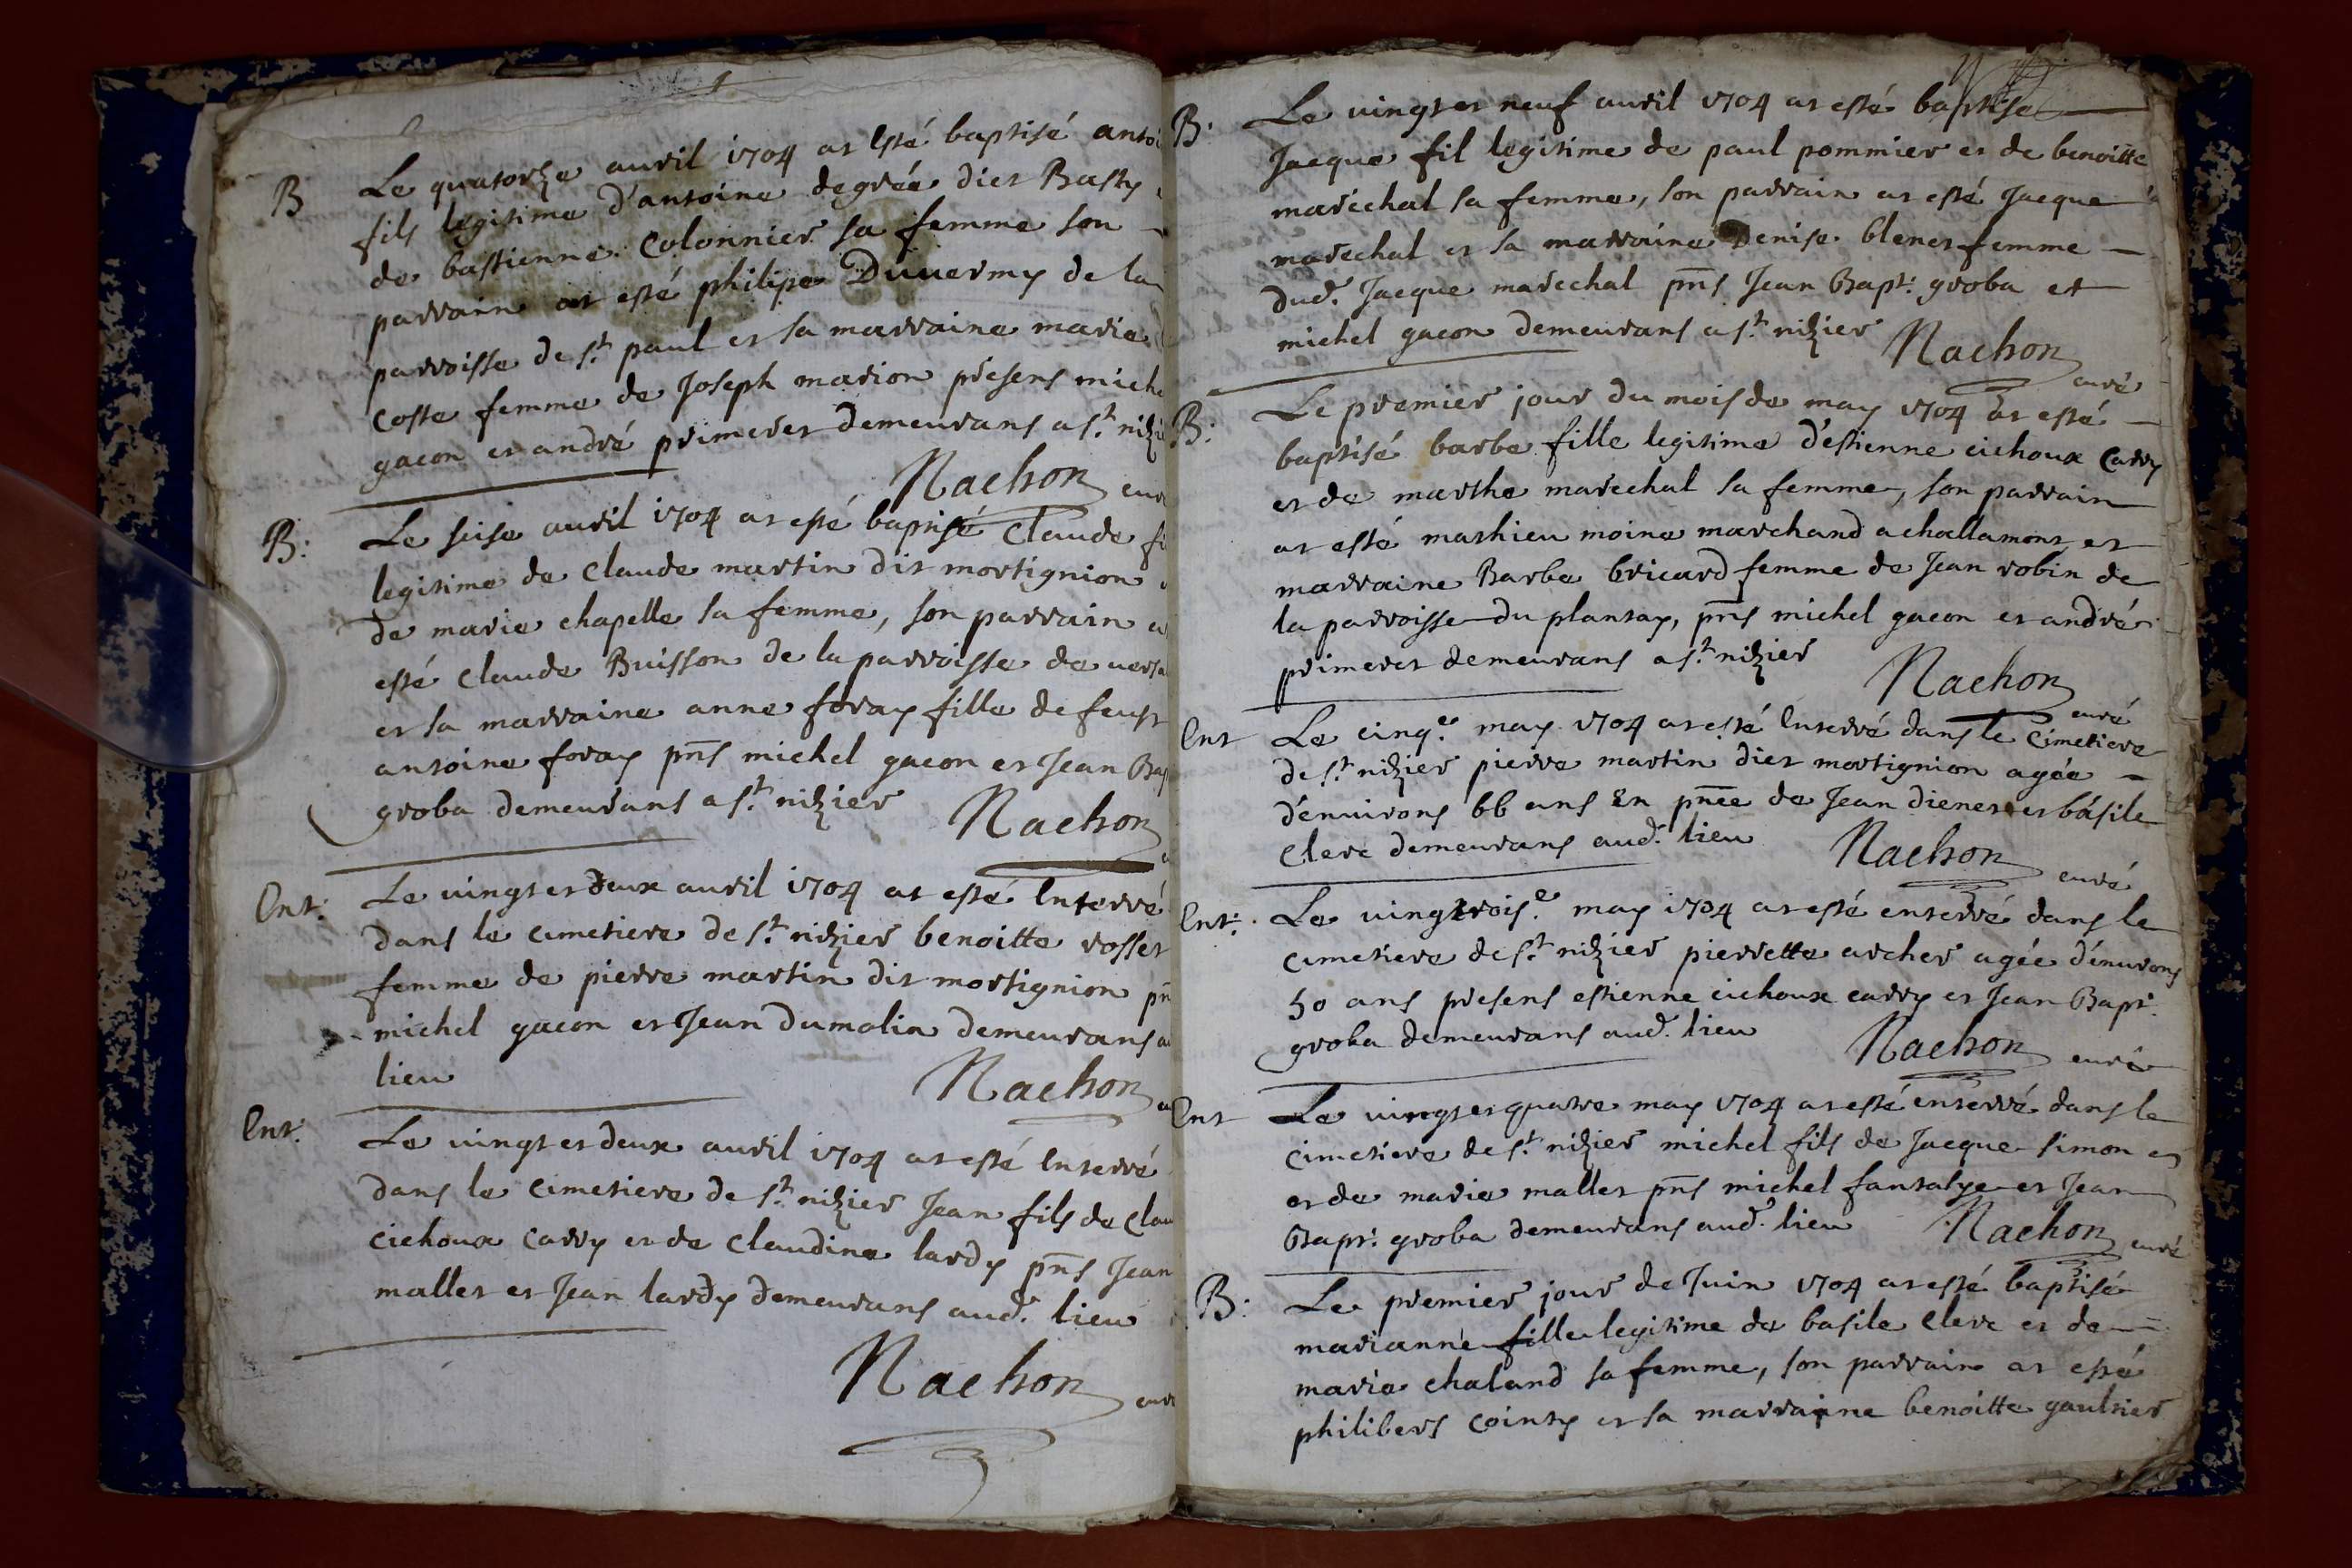 B Le quatorze auvril 1704 at esté baptisé antoi
fils legitime d'antoine degrée diet Basty
de bastienne Colonnier sa femme son
parrain at esté philipe Duvermy de la
parroisse de st paul et sa marraine marie
coste femme de Joseph marion presens miche
gacon et andré primeret demeurans a st nizie
Nachon curé
B: Le seise auvril 1704 at esté baptisé Claude fi
legitime de Claude martin dit mortignion
de marie chapelle sa femme, son parrain a
esté Claude Buisson de la parroisse de versa
et sa marraine anne foray fille de feust
antoine foray pns michel gacon et Jean Bap
groba demeurans a st nizier
Nachon
Ent: Le vingt et deux auvril 1704 at esté Enterré
dans le cimetiere de st nizier benoitte rosset
femme de pierre martin dit mortignion pn
michel gacon et Jean dumolin demeurans a
lieu
Nachon
Ent: Le vingt et deux auvril 1704 at esté Enterré
dans le cimetiere de st nizier Jean fils de Clau
cichoux carry et de Claudine lardy pns Jean
mallet et Jean lardy demeurans aud. lieu
Nachon curé
B: Le vingt et neuf auvril 1704 at esté baptise
Jacque fil legitime de paul pommier et de benoitte
marechal sa femme, son parrain at esté Jacque
marechal et sa marraine Denise blenet femme
dud. Jacque marechal pns Jean Bapt. groba et
michel gacon demeurans a st nizier
Nachon curé
B: Le premier jour du mois de may 1704 at esté
baptisé barbe fille legitime d'estienne cichoux Carry
et de marthe marechal sa femme, son parrain
at esté mathieu moine marchand a challamont et
marraine Barbe bricard femme de Jean robin de
la parroisse du plantay, pns michel gacon et andré
primeret demeurans a st nizier
Nachon curé
Ent Le cinq.e may 1704 at esté Enterré dans le Cimetiere
de st nizier pierre martin diet mortignion agée
d'environs 66 ans En pnce de Jean dienet et basile
Clerc demeurans aud. lieu
Nachon curé
Ent: Le vingtrois.e may 1704 at esté enterré dans le
cimetiere de st nizier pierrette archer agée d'environs
50 ans presens estienne cichoux carry et Jean Bapt.
groba demeurans aud. lieu
Nachon curé
Ent Le vingt et quatre may 1704 at esté enterré dans le
cimetiere de st nizier michel fils de Jacque simon et
et de marie mallet pns michel fantalye et Jean
Bapt. groba demeurans aud. lieu
Nachon curé
B: Le premier jour de Juin 1704 at esté baptisé
marianne fille legitime de basile Clerc et de
marie chaland sa femme, son parrain at esté
philibers Cointy et sa marraine benoitte gaultier